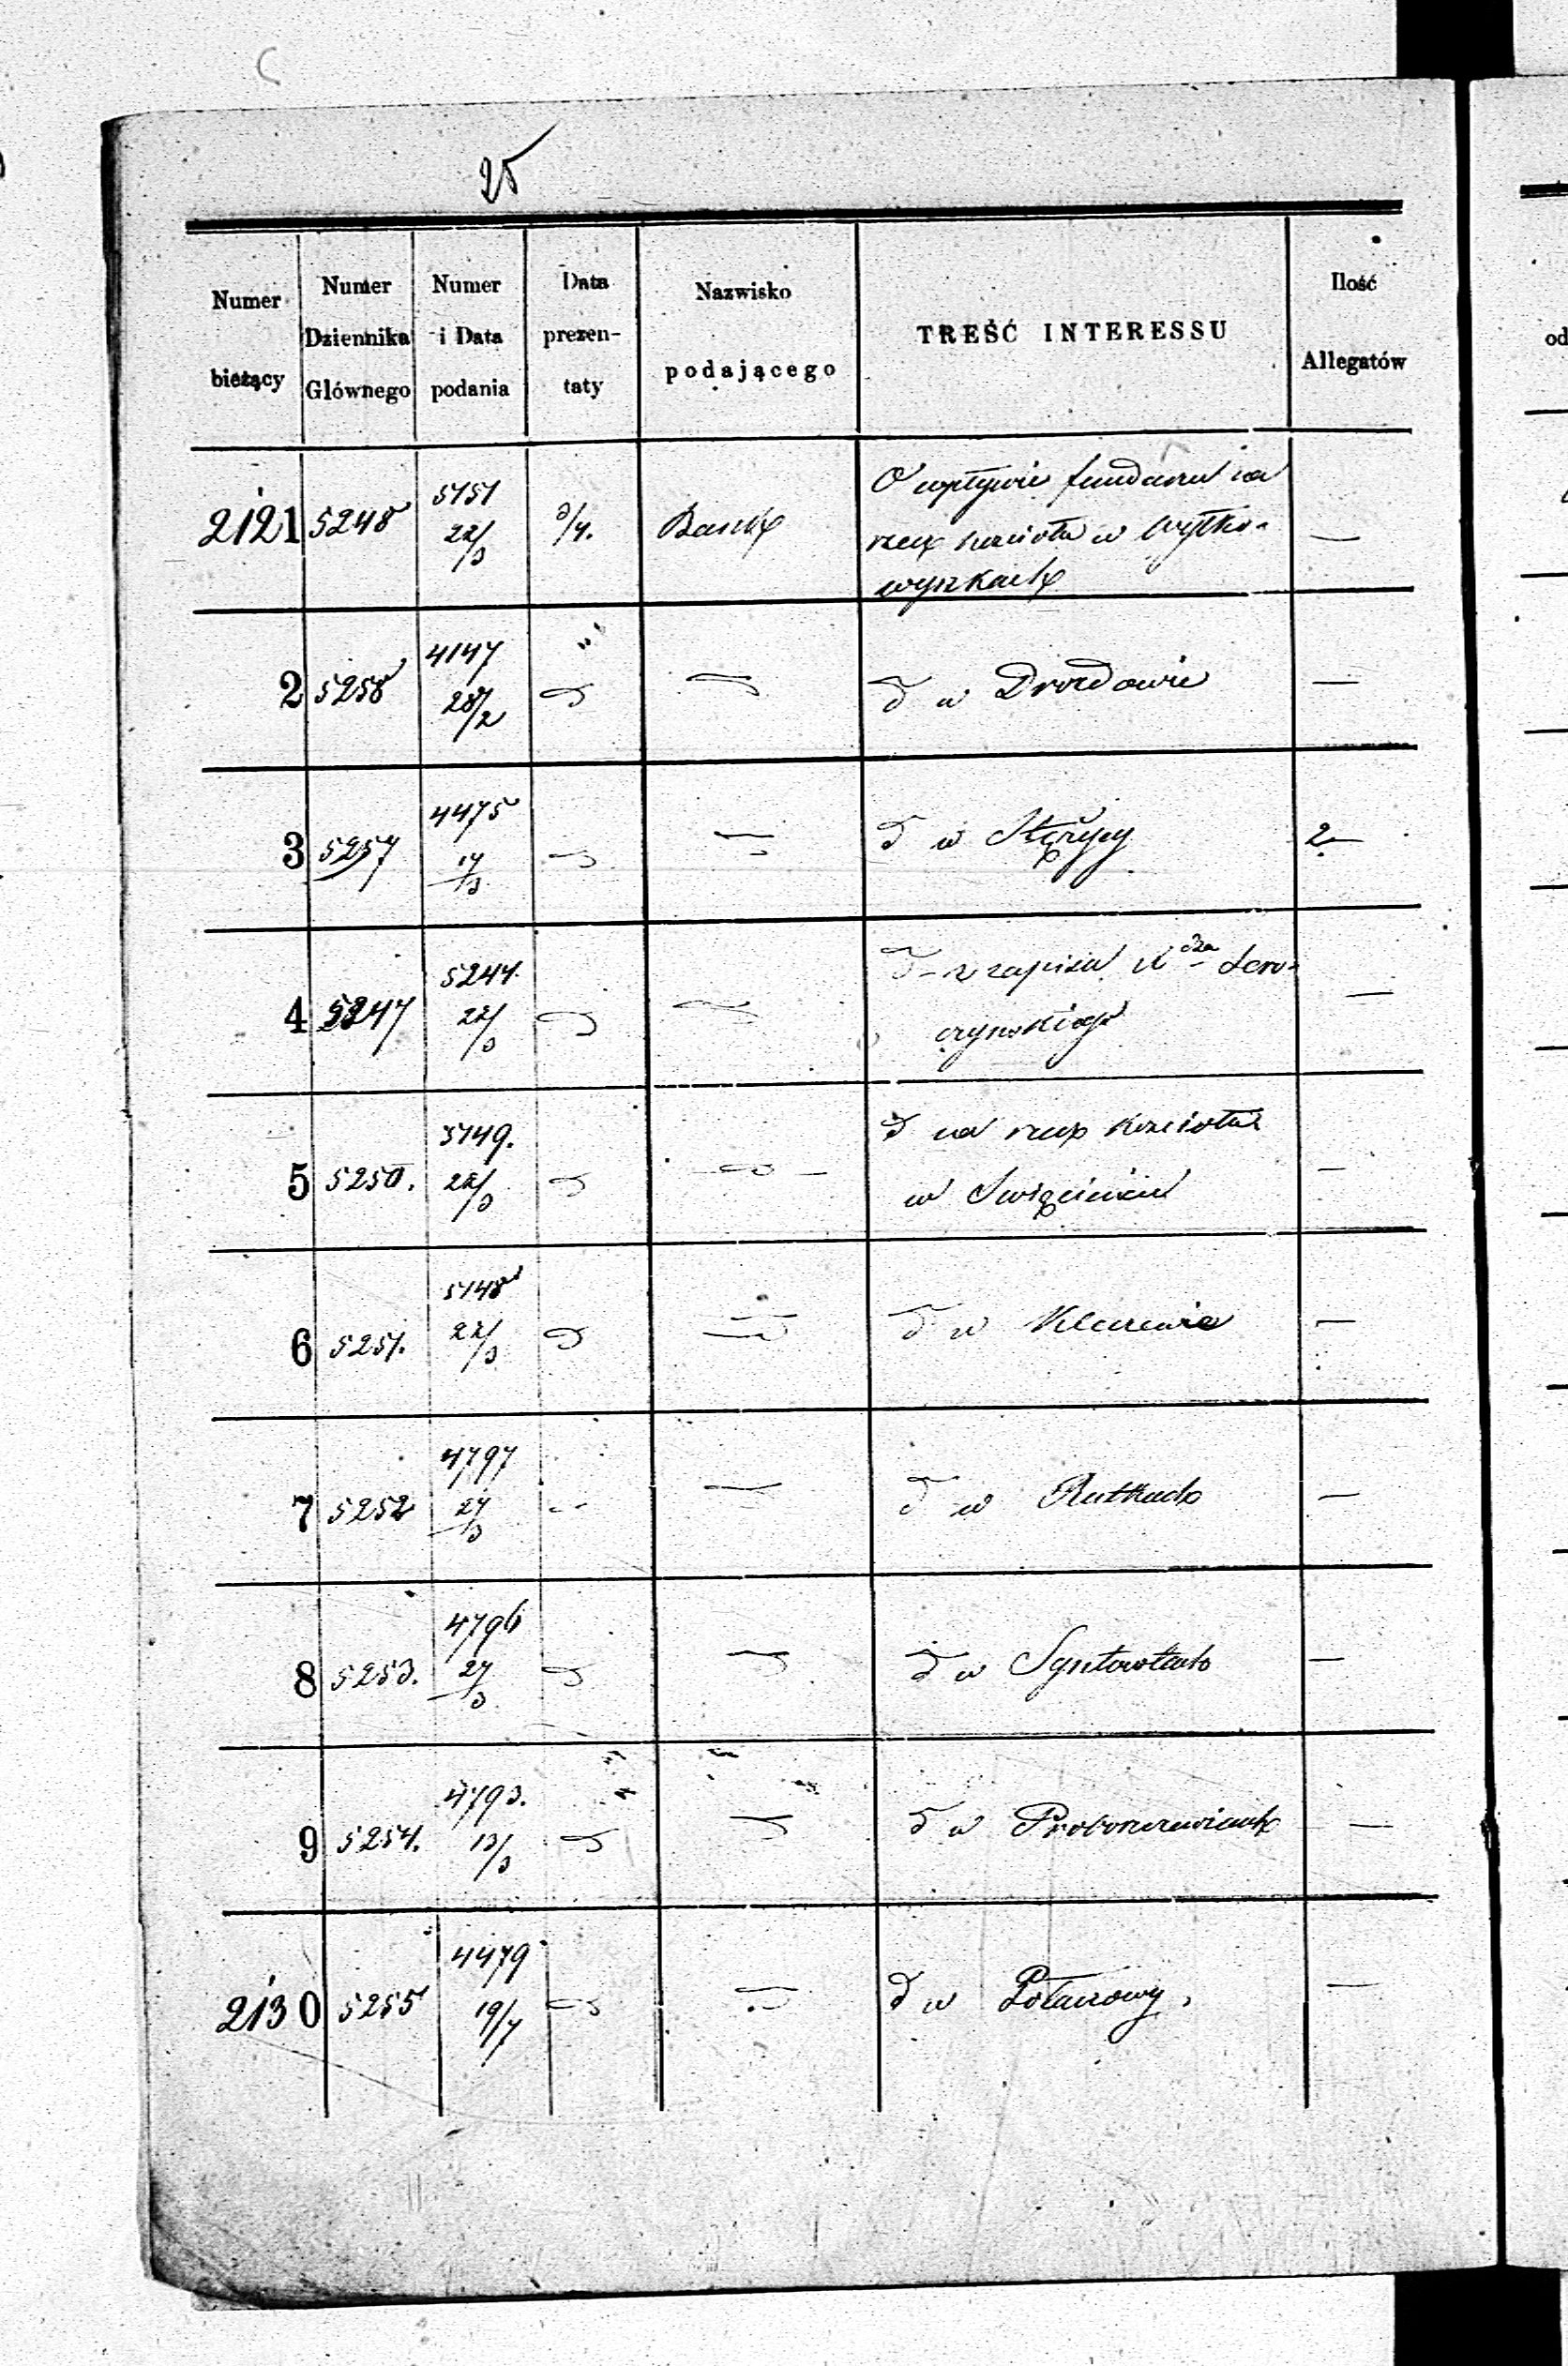 25
Numer bieżący
Numer Dziennika Głównego
Numer i Data podania
Data prezentaty
Nazwisko podającego
TREŚĆ INTERESSU
Ilość Allegatów
2121 5248 5151 22/3 3/4. Bank O wpływie funduszu na
rzecz kościoła w Wyłko-
wyszkach —
2 5258 4147 28/2 d w Drozdowie —
3 5257 4475 17/3 d w Stężycy 2
4 5247 5244 22/3 d z zapisu Xdza
czyńskiego —
5 5250. 5149. 22/3 d na rzecz kościoła
w Święcienin —
6 5251. 5148 22/3 d w Klerewie —
7 5252 4797 27/3 d w Rutkach —
8 5253. 4796 27/3 d w Syntowtach —
9 5254. 4793. 13/3 d w —
2130 5255 4479 19/7 d w Połanowy. —